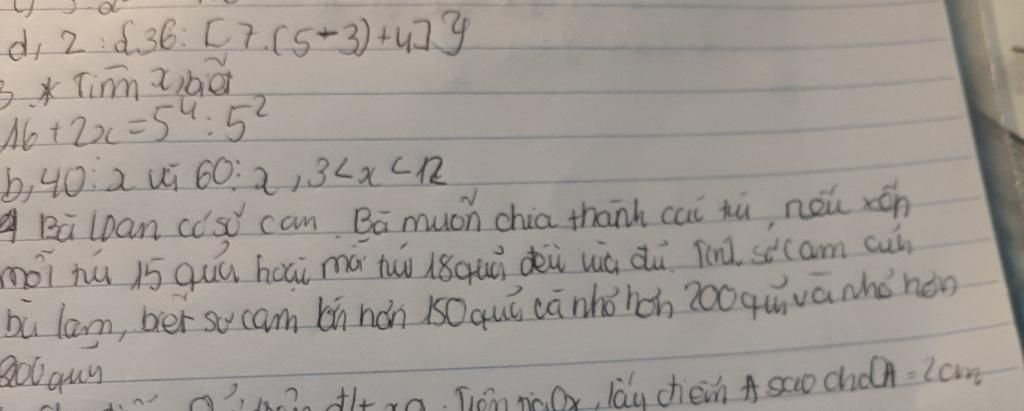 d, 2 : {36 : [7.(5+3)+4]}
3 * Tìm x, biết
16 + 2x = 5⁴ : 5²
b, 40 ⋮ x và 60 ⋮ x, 3 < x < 12
4 Bà loan có số cam. Bà muốn chia thành các túi, nếu xốp
mỗi túi 15 quả hoặc mỗi túi 18 quả đều vừa đủ. Tính số cam của
bà lam, biết số cam lớn hơn 150 quả và nhỏ hơn 200 quả và nhỏ hơn
200 quả
Trên tia Ox, lấy điểm A sao cho OA = 2cm